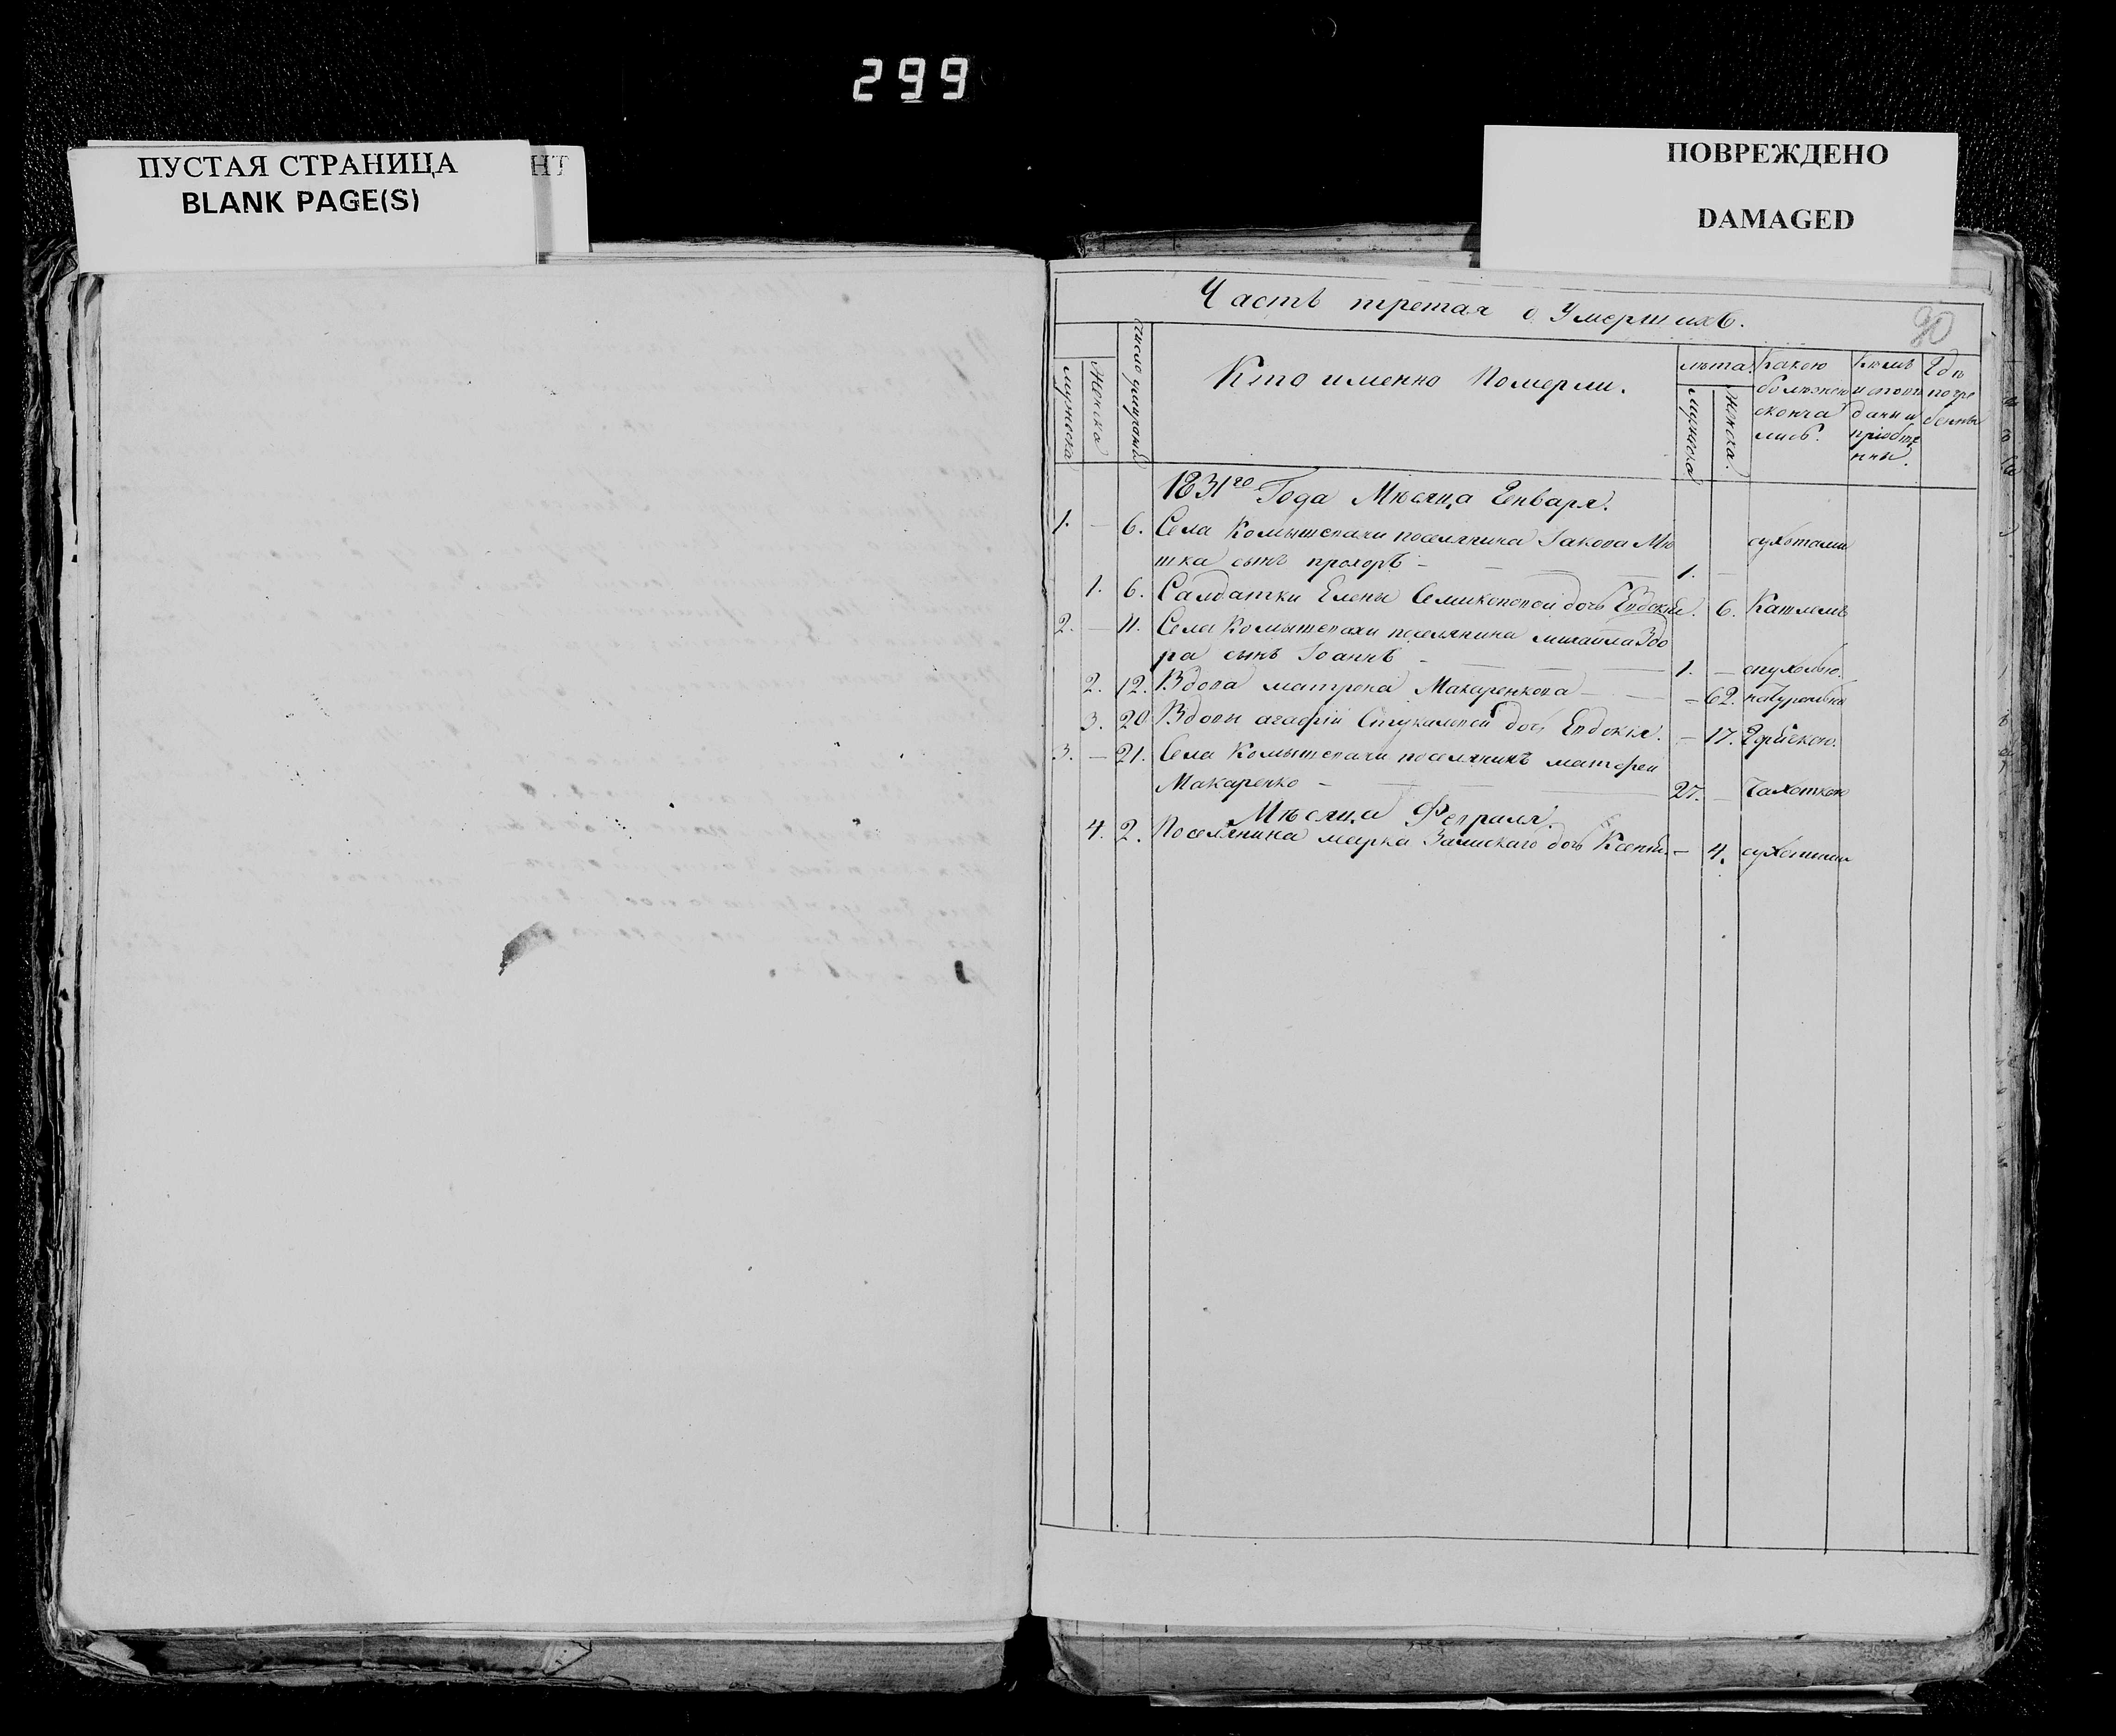 299
ПУСТАЯ СТРАНИЦА
BLANK PAGE(S)
НТ
ПОВРЕЖДЕНО
DAMAGED
Часть третая о Умершихъ.
90
мужеска
Женска
число умершихъ
Кто именно Померли.
лѣта
мужеска
женска.
Какою болѣзнею сконча лись.
Кѣмъ
Гдѣ погре бенны
1831го Года Мѣсяца Генваря.
1. — 6. Села Комышевахи поселянина Іакова Мѣ сухотами
шка сынъ прохоръ — 1. —
1. 6. Салдатки Елены дочь Евдокія. 6. Кашлемъ
2. — 11. Села Комышевахи поселянина михаила Здо
ра сынъ Іоаннъ — 1. — опухолью.
2. 12. Вдова матрона Макаренкова — 62. натурально
3. 20. Вдовы агафіи дочь Евдокія. — 17.
3. — 21. Села Комышевахи поселянинъ матфей
Макаренко — 27. — Чахоткою
Мѣсяца Февраля.
4. 2. Поселянина марка дочь Ксенія — 4. сухотами